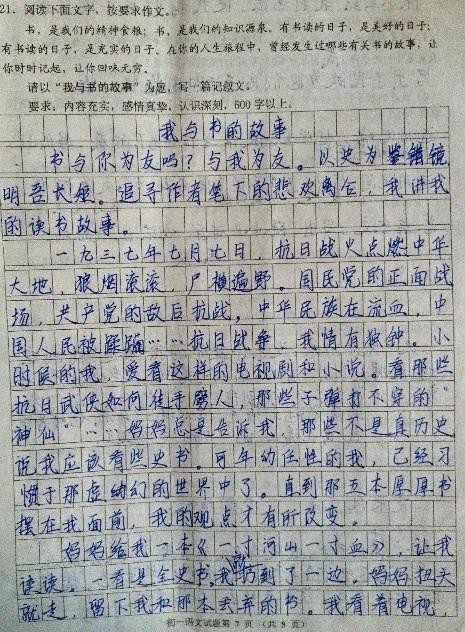 21. 阅读下面文字，按要求作文。
书，是我们的精神食粮；书，是我们的知识源泉。有书读的日子，是美好的日子；
有书读的日子，是充实的日子。在你的人生旅程中，曾经发生过哪些有关书的故事，让
你时时记起，让你回味无穷。
请以“我与书的故事”为题，写一篇记叙文。
要求：内容充实，感情真挚，认识深刻，600字以上。
我与书的故事
书与你为友吗？与我为友。以史为鉴镜
明吾长短。追寻作者笔下的悲欢离合；我讲我
的读书故事。
一九三七年七月七日，抗日战火点燃中华
大地，狼烟滚滚，尸横遍野。国民党的正面战
场，共产党的敌后抗战，中华民族在流血，中
国人民被蹂躏……抗日战争，我情有独钟。小
时候的我，爱看这样的电视剧和小说。看那些
抗日武侠如何徒手劈人，那些子弹打不穿的“
神仙”……妈妈总是告诉我，那些不是真历史
说我应该看些史书。可年幼任性的我，已经习
惯于那虚幻的世界中了。直到那五本厚厚书
摆在我面前，我的观点才有所改变。
妈妈给我一本《一寸河山一寸血》，让我
读读。一看是全史书，我扔到了一边。妈妈扭头
就走，留下我和那本丢弃的书。我看着电视，
初一语文试题第 7 页 （共 8 页）